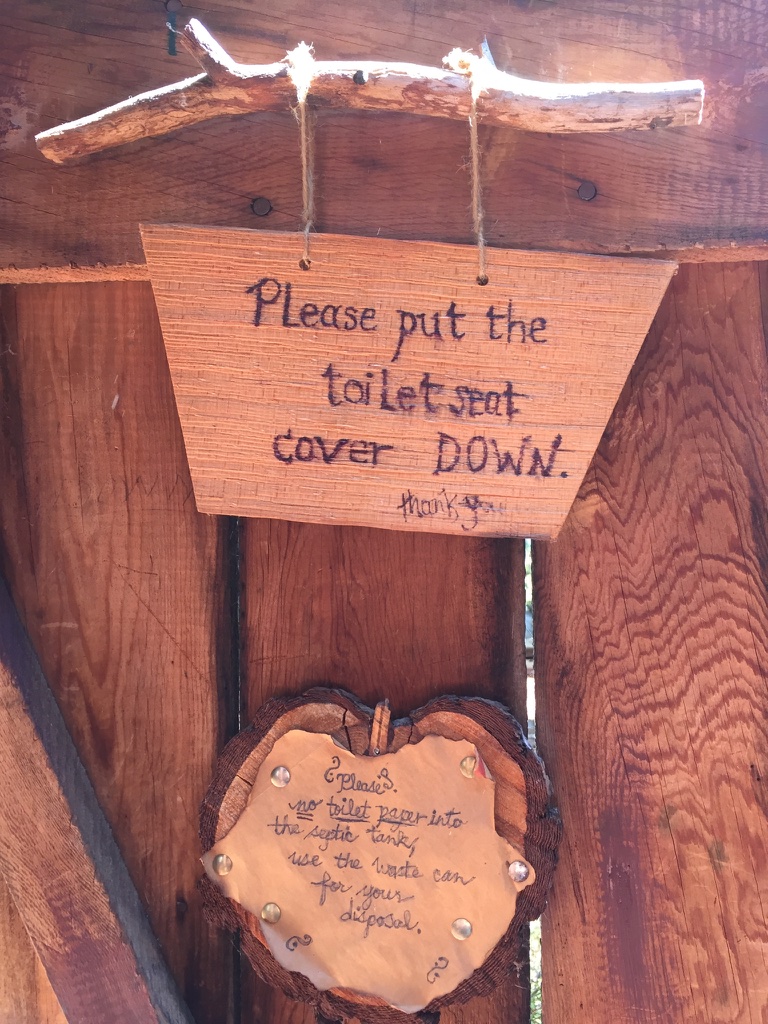 Please put the
toilet seat
cover DOWN.
thank you
Please
no toilet paper into
the septic tank,
use the waste can
for your
disposal.